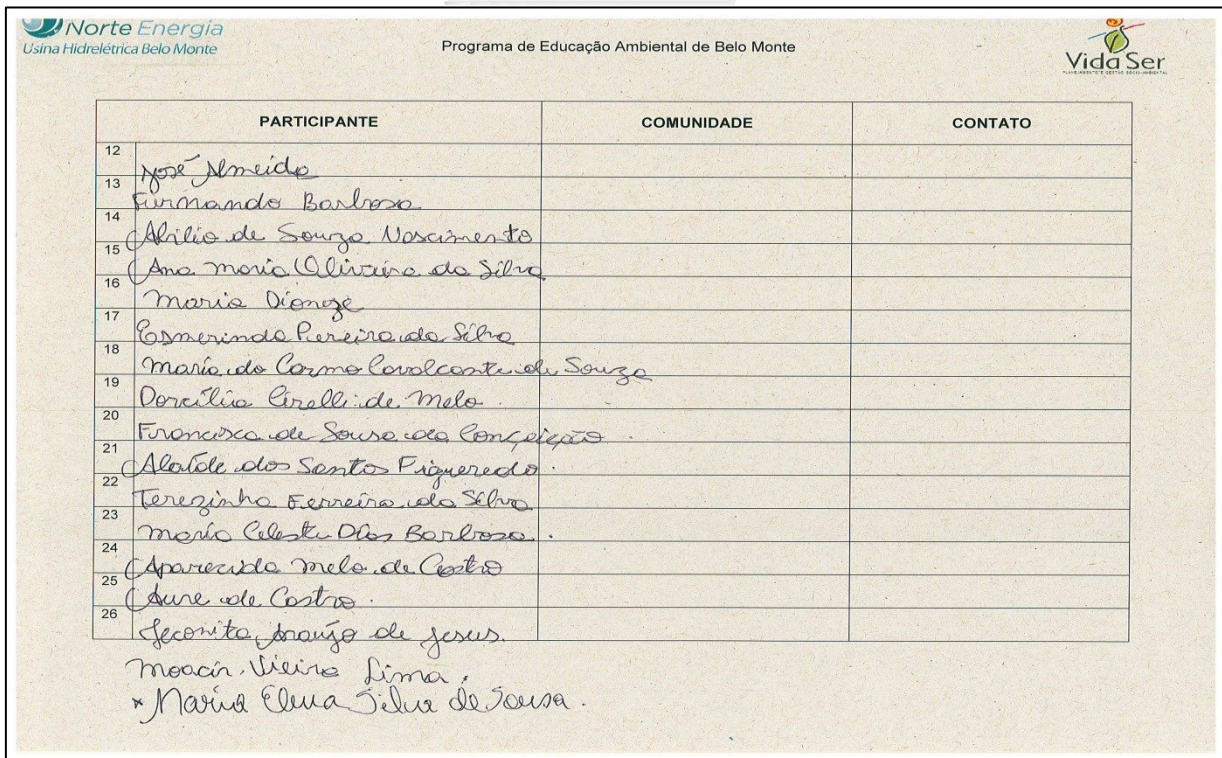 Norte Energia
Usina Hidrelétrica Belo Monte
Programa de Educação Ambiental de Belo Monte
Vida Ser
PLANEJAMENTO E GESTÃO SÓCIO-AMBIENTAL
PARTICIPANTE COMUNIDADE CONTATO
12 José Almeida
13 Fernando Barbosa
14 Abilio de Souza Nascimento
15 Ana Maria Oliveira da Silva
16 Maria Dioneze
17 Esmerinda Pereira da Silva
18 Maria do Carmo Cavalcante de Souza
19 Dorcília Cirelli de Melo.
20 Francisca de Sousa da Conceição.
21 Alaíde dos Santos Figueredo.
22 Terezinha Ferreira da Silva
23 Maria Celeste Dias Barbosa.
24 Aparecida Melo de Castro
25 Aure de Castro.
26 Jeconita Araújo de Jesus.
Moacir Vieira Lima.
* Maria Elena Silva de Sousa.